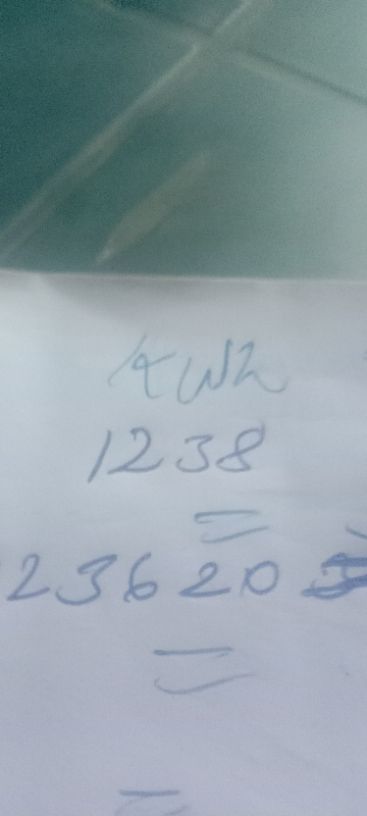 KWh
1238
=
23620
=
=